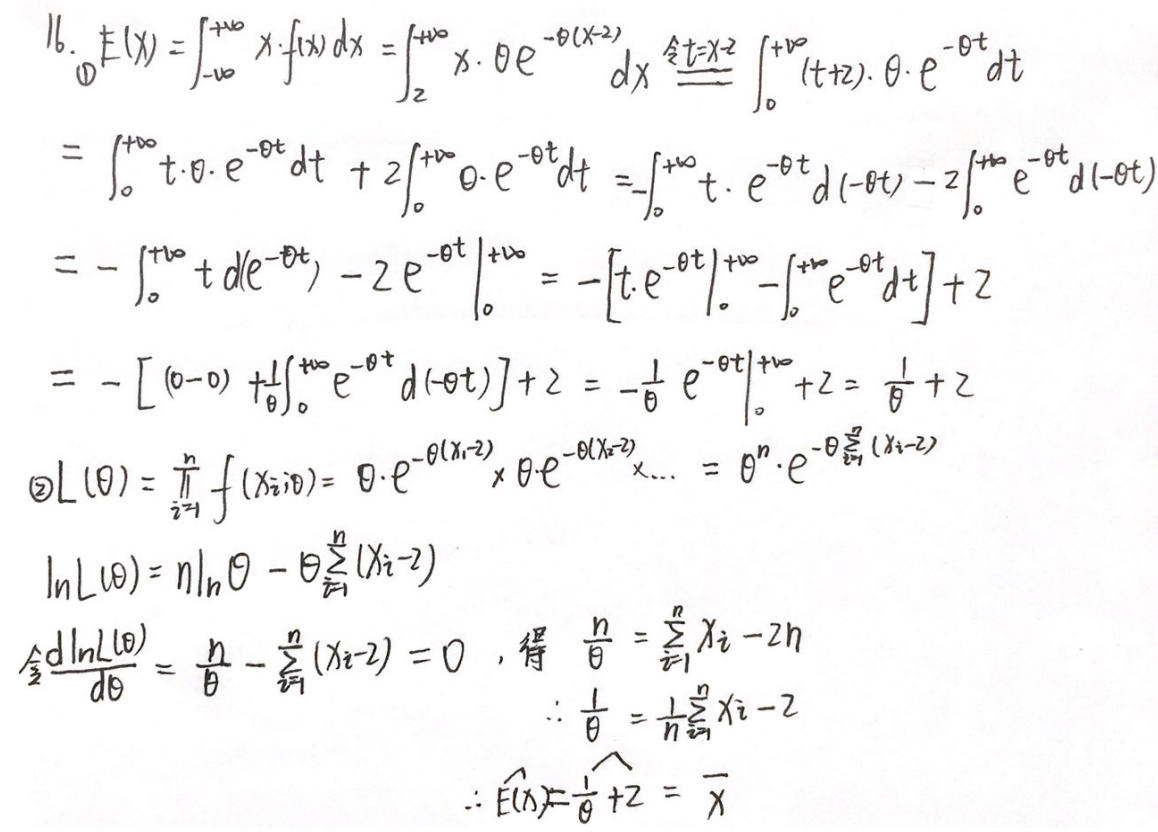 16. ① E(X) = ∫_{-∞}^{+∞} x·f(x) dx = ∫_{2}^{+∞} x·θe^{-θ(x-2)} dx ═(令t=x-2)═ ∫_{0}^{+∞} (t+2)·θ·e^{-θt} dt
= ∫_{0}^{+∞} t·θ·e^{-θt} dt + 2∫_{0}^{+∞} θ·e^{-θt} dt = -∫_{0}^{+∞} t·e^{-θt} d(-θt) - 2∫_{0}^{+∞} e^{-θt} d(-θt)
= -∫_{0}^{+∞} t d(e^{-θt}) - 2e^{-θt}|_{0}^{+∞} = -[t·e^{-θt}|_{0}^{+∞} - ∫_{0}^{+∞} e^{-θt} dt] + 2
= -[(0-0) + \frac{1}{θ}∫_{0}^{+∞} e^{-θt} d(-θt)] + 2 = -\frac{1}{θ} e^{-θt}|_{0}^{+∞} + 2 = \frac{1}{θ} + 2
② L(θ) = ∏_{i=1}^{n} f(x_i;θ) = θ·e^{-θ(x_1-2)} × θ·e^{-θ(x_2-2)} × ... = θ^n·e^{-θ∑_{i=1}^{n}(x_i-2)}
lnL(θ) = nlnθ - θ∑_{i=1}^{n}(x_i-2)
令\frac{dlnL(θ)}{dθ} = \frac{n}{θ} - ∑_{i=1}^{n}(x_i-2) = 0 , 得 \frac{n}{θ} = ∑_{i=1}^{n} x_i - 2n
∴ \frac{1}{θ} = \frac{1}{n}∑_{i=1}^{n} x_i - 2
∴ \widehat{E(X)} = \widehat{\frac{1}{θ}+2} = \overline{X}